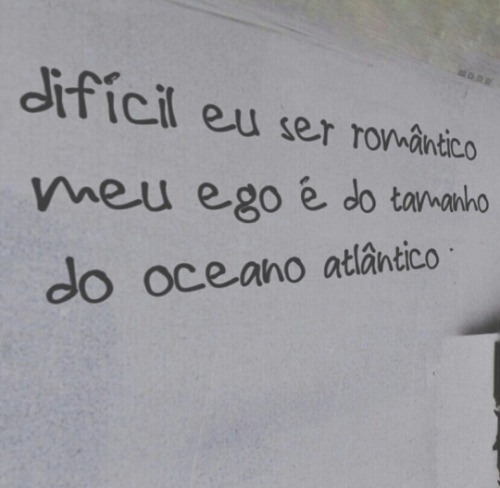 difícil eu ser romântico
meu ego é do tamanho
do oceano atlântico